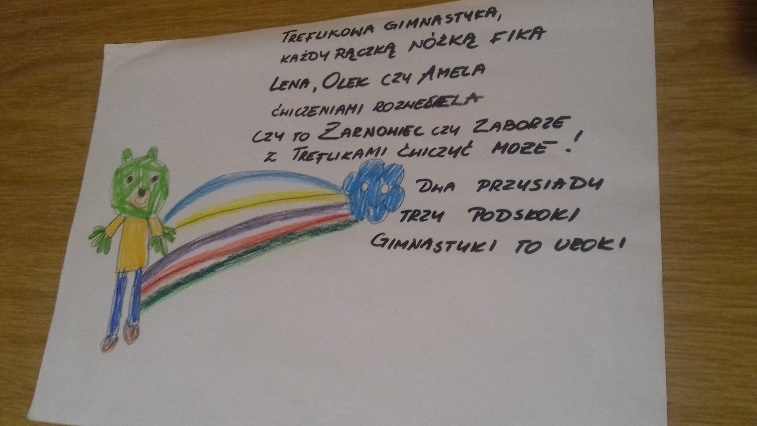 TREFLIKOWA GIMNASTYKA,
KAŻDY RĄCZKĄ NÓŻKĄ FIKA
LENA, OLEK CZY AMELA
ĆWICZENIAMI ROZWESELA
CZY TO ŻARNOWIEC CZY ZABORZE
Z TREFLIKAMI ĆWICZYĆ MOŻE!
DWA PRZYSIADY
TRZY PODSKOKI
GIMNASTYKI TO UROKI